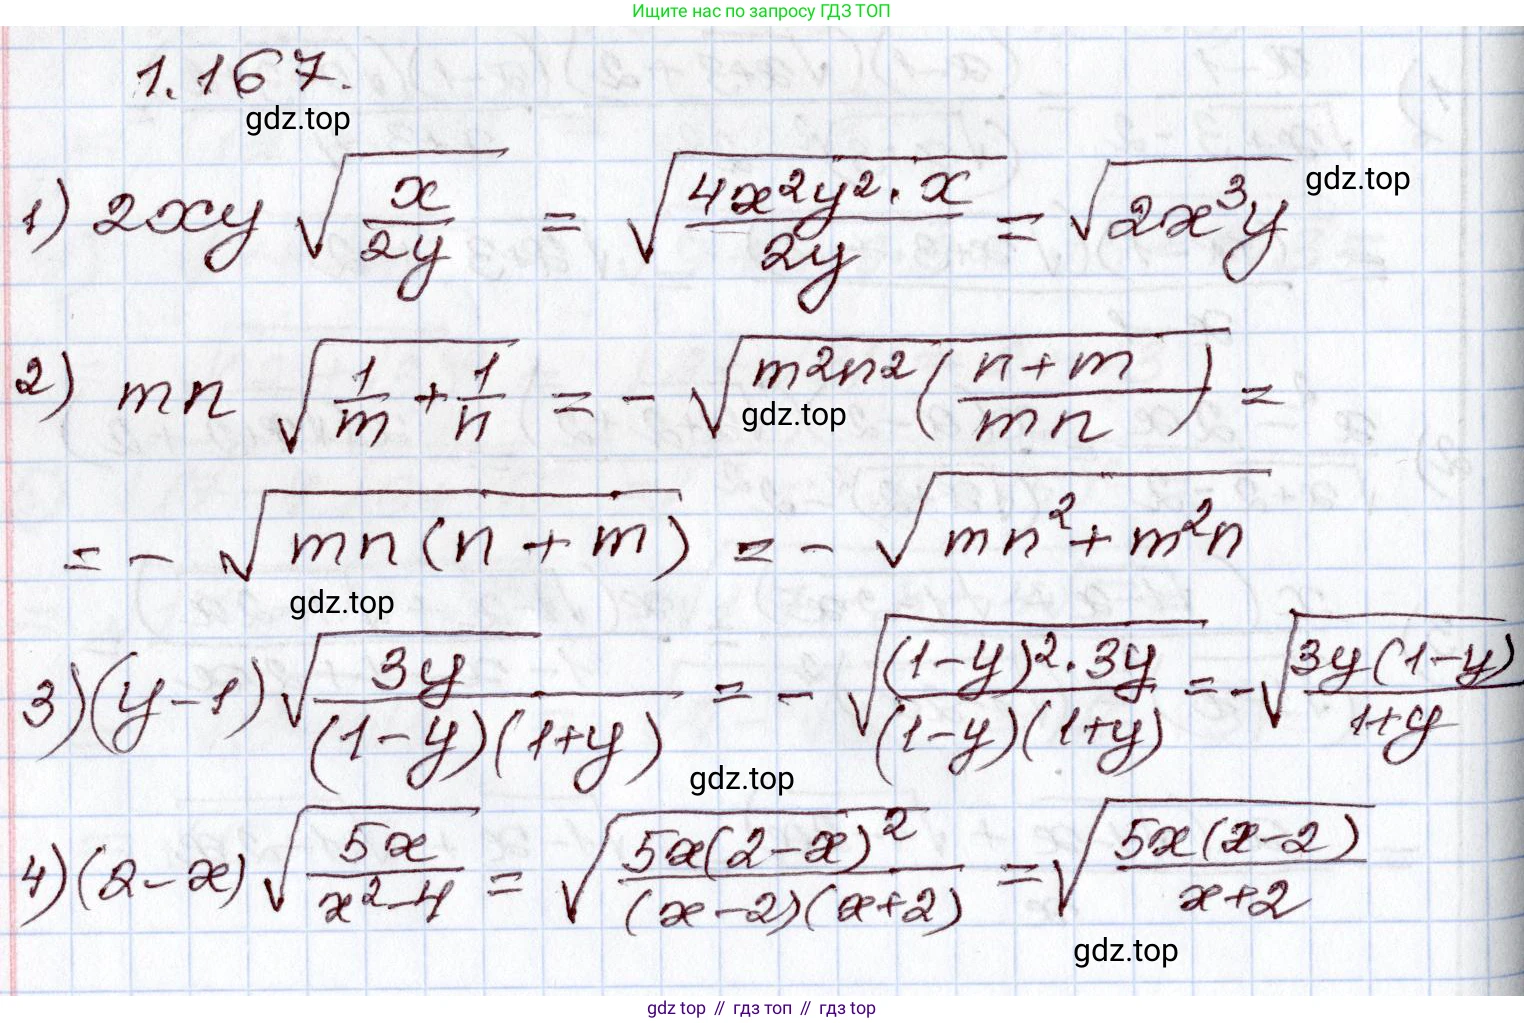 Ищите нас по запросу ГДЗ ТОП
1.167.
gdz.top
1) 2xy √(x/2y) = √(4x²y²·x/2y) = √(2x³y)
gdz.top
2) mn √(1/m + 1/n) = - √(m²n²((n+m)/mn)) =
gdz.top
= - √(mn(n+m)) = - √(mn²+m²n)
gdz.top
3) (y-1) √(3y/(1-y)(1+y)) = - √((1-y)²·3y/(1-y)(1+y)) = - √(3y(1-y)/1+y)
gdz.top
4) (2-x) √(5x/x²-4) = √(5x(2-x)²/(x-2)(x+2)) = √(5x(x-2)/x+2)
gdz.top
gdz top // гдз топ // gdz top